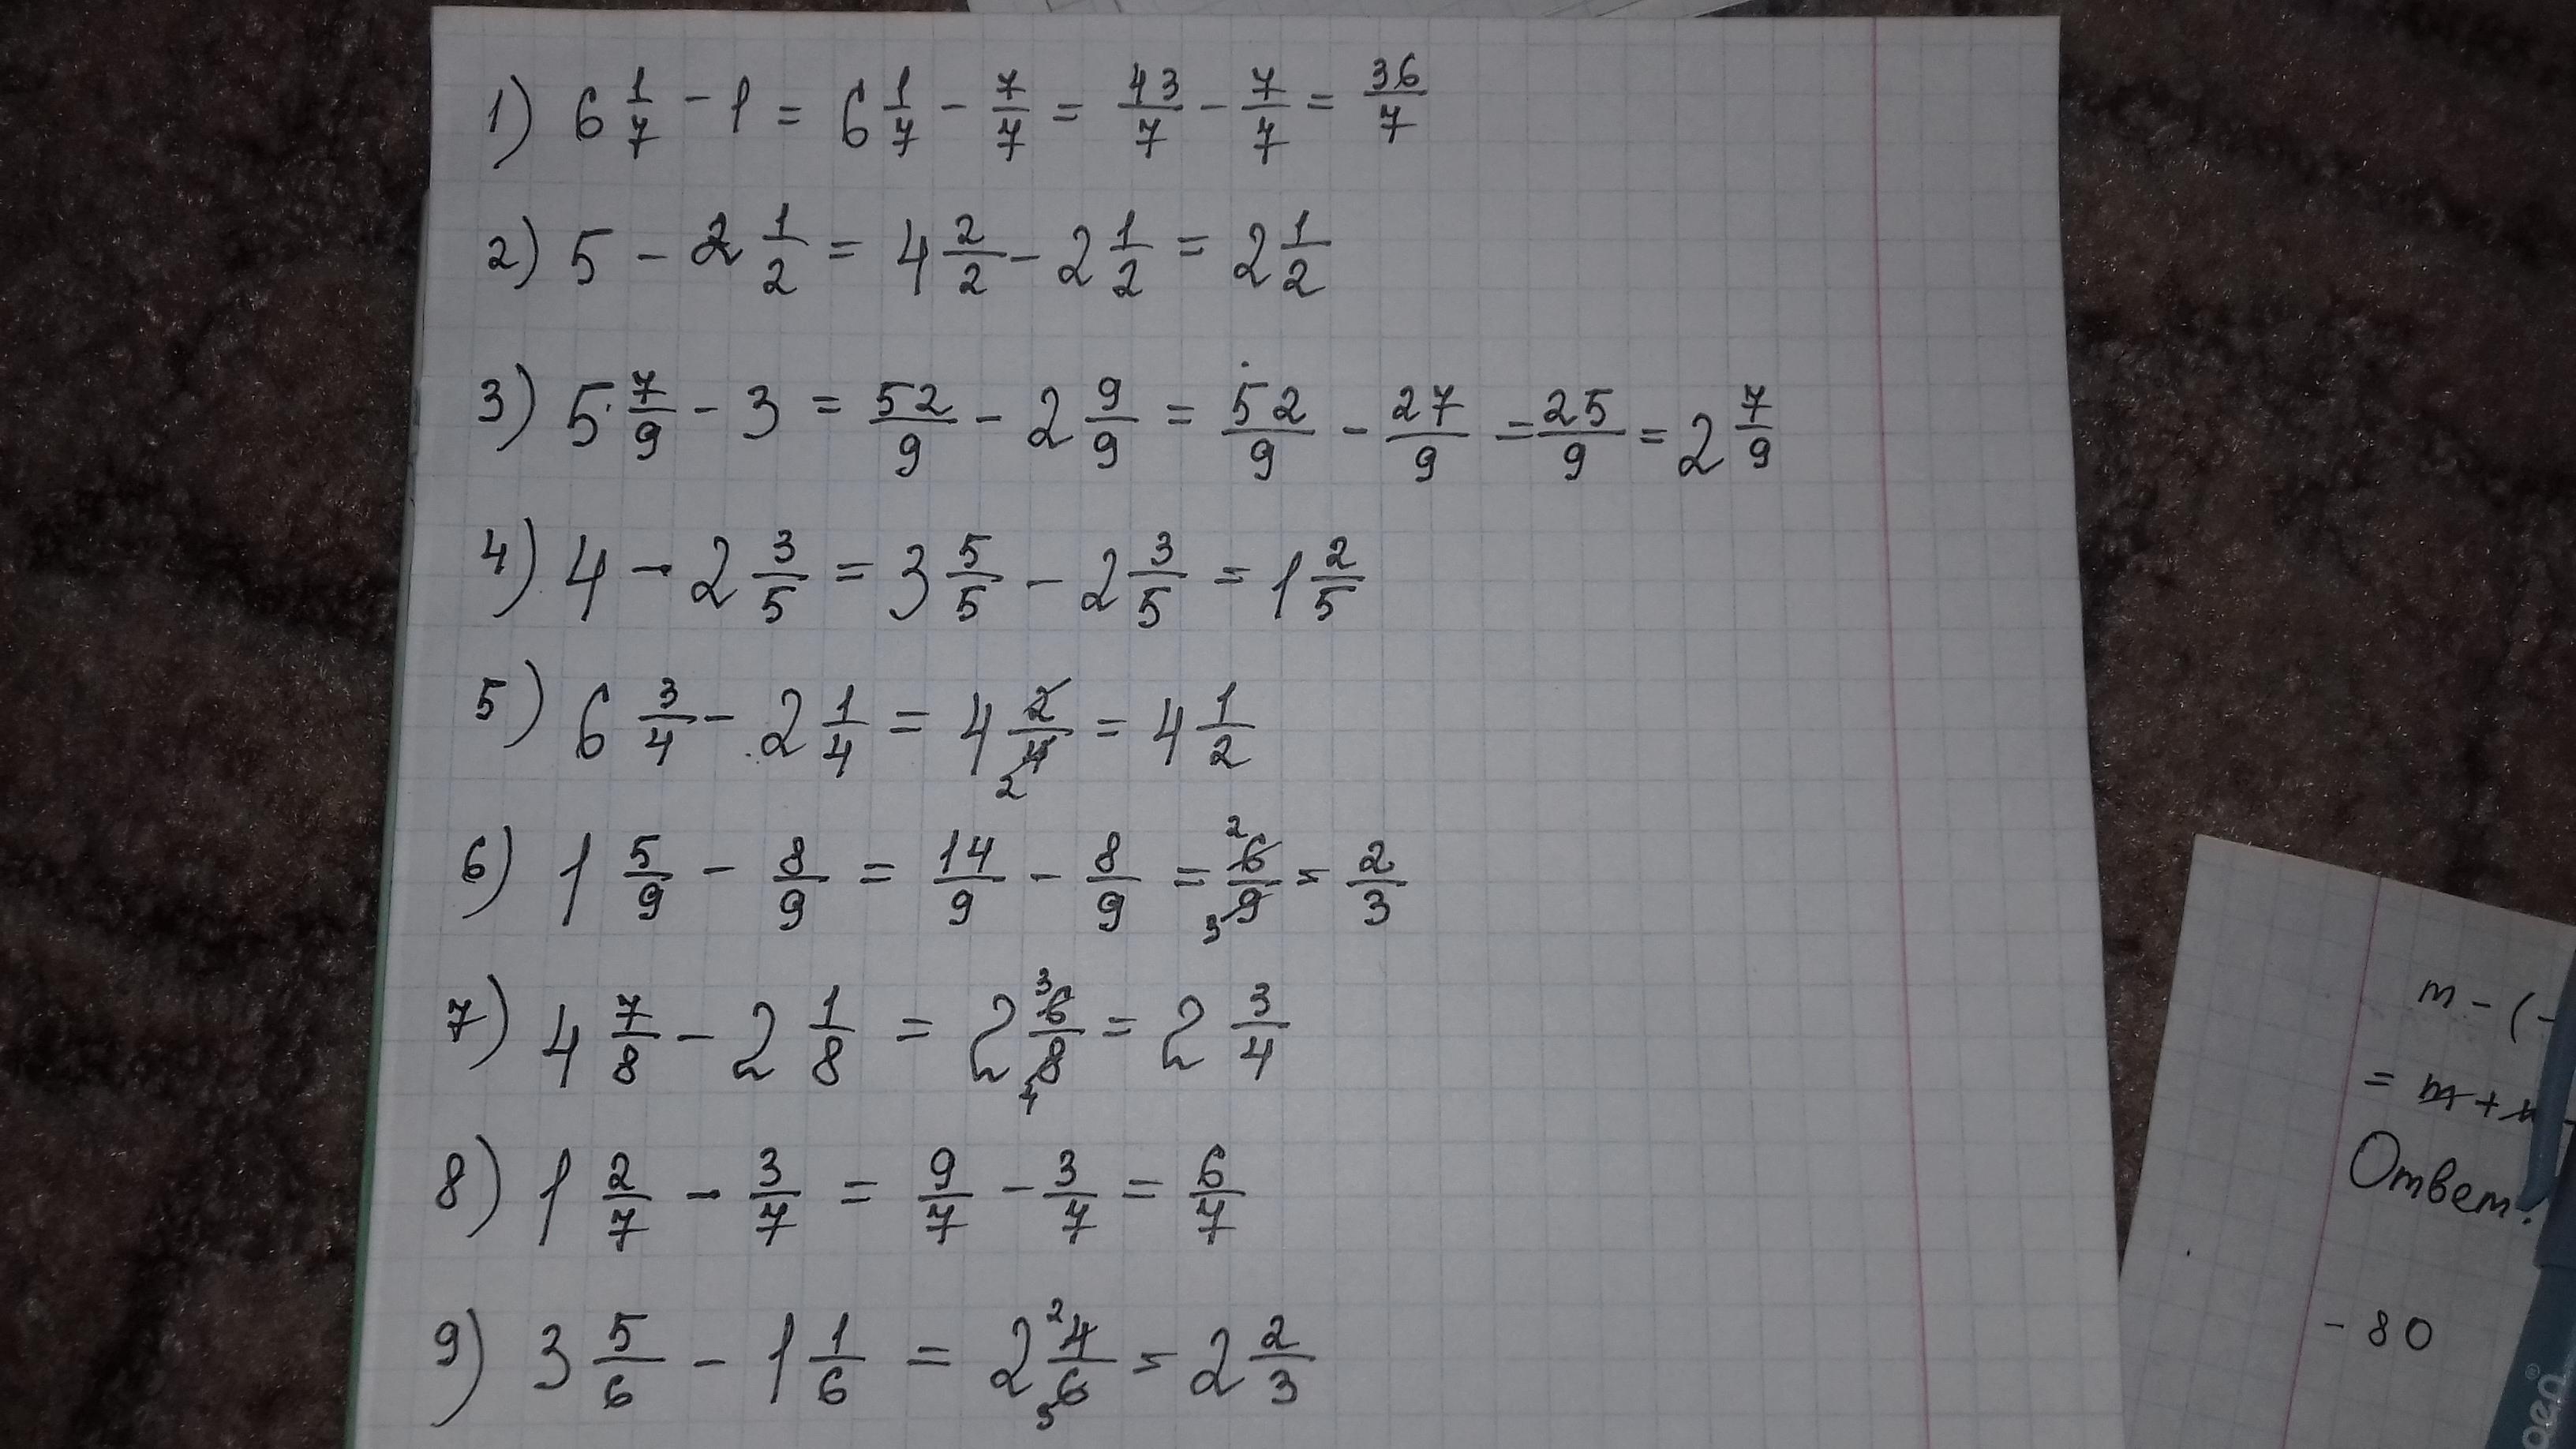 1) 6 1/7 - 1 = 6 1/7 - 7/7 = 43/7 - 7/7 = 36/7
2) 5 - 2 1/2 = 4 2/2 - 2 1/2 = 2 1/2
3) 5 7/9 - 3 = 52/9 - 2 9/9 = 52/9 - 27/9 = 25/9 = 2 7/9
4) 4 - 2 3/5 = 3 5/5 - 2 3/5 = 1 2/5
5) 6 3/4 - 2 1/4 = 4 2/4 2 = 4 1/2
6) 1 5/9 - 8/9 = 14/9 - 8/9 = 2 6/9 3 = 2/3
7) 4 7/8 - 2 1/8 = 2 3 6/8 4 = 2 3/4
8) 1 2/7 - 3/7 = 9/7 - 3/7 = 6/7
9) 3 5/6 - 1 1/6 = 2 2 4/6 3 = 2 2/3
m - (-
= m + n
Ответ:
- 80